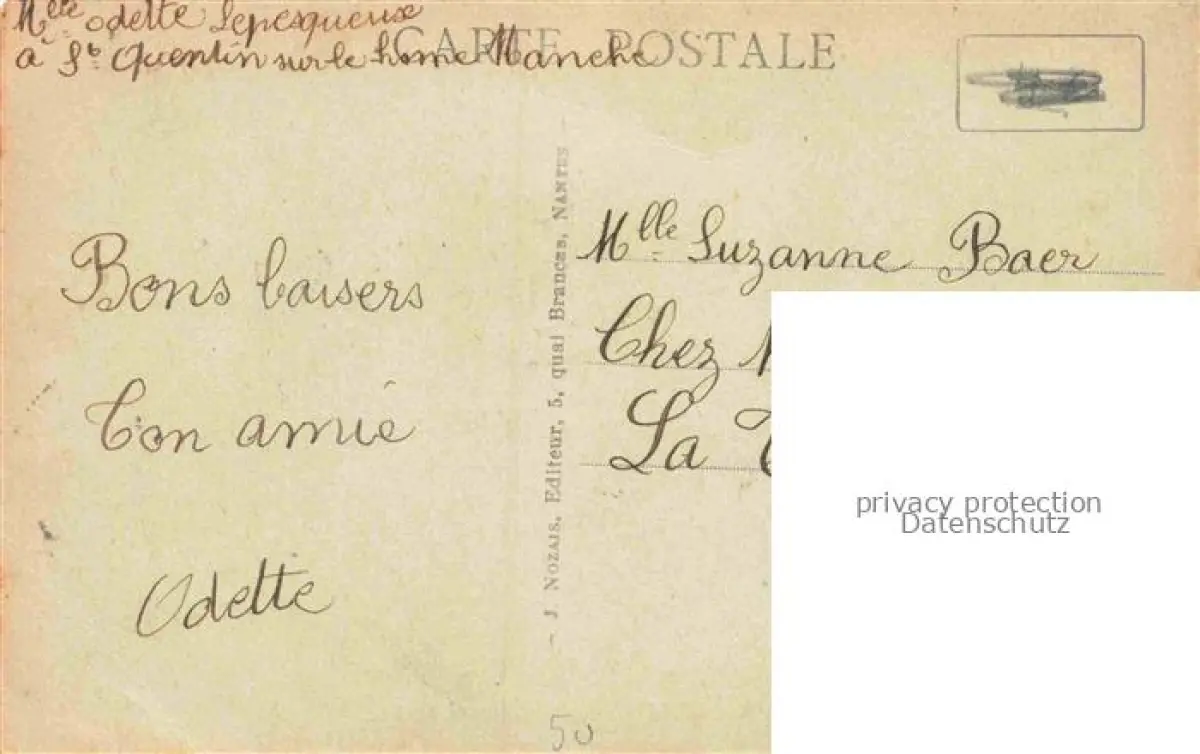 Mlle Odette Lepesqueux
à St Quentin sur le home Manche
CARTE POSTALE
Bons baisers
Ton amie
Odette
J. NOZAIS, Editeur, 5, quai Brancas, NANTES
Mlle Suzanne Baer
Chez
La
privacy protection
Datenschutz
50